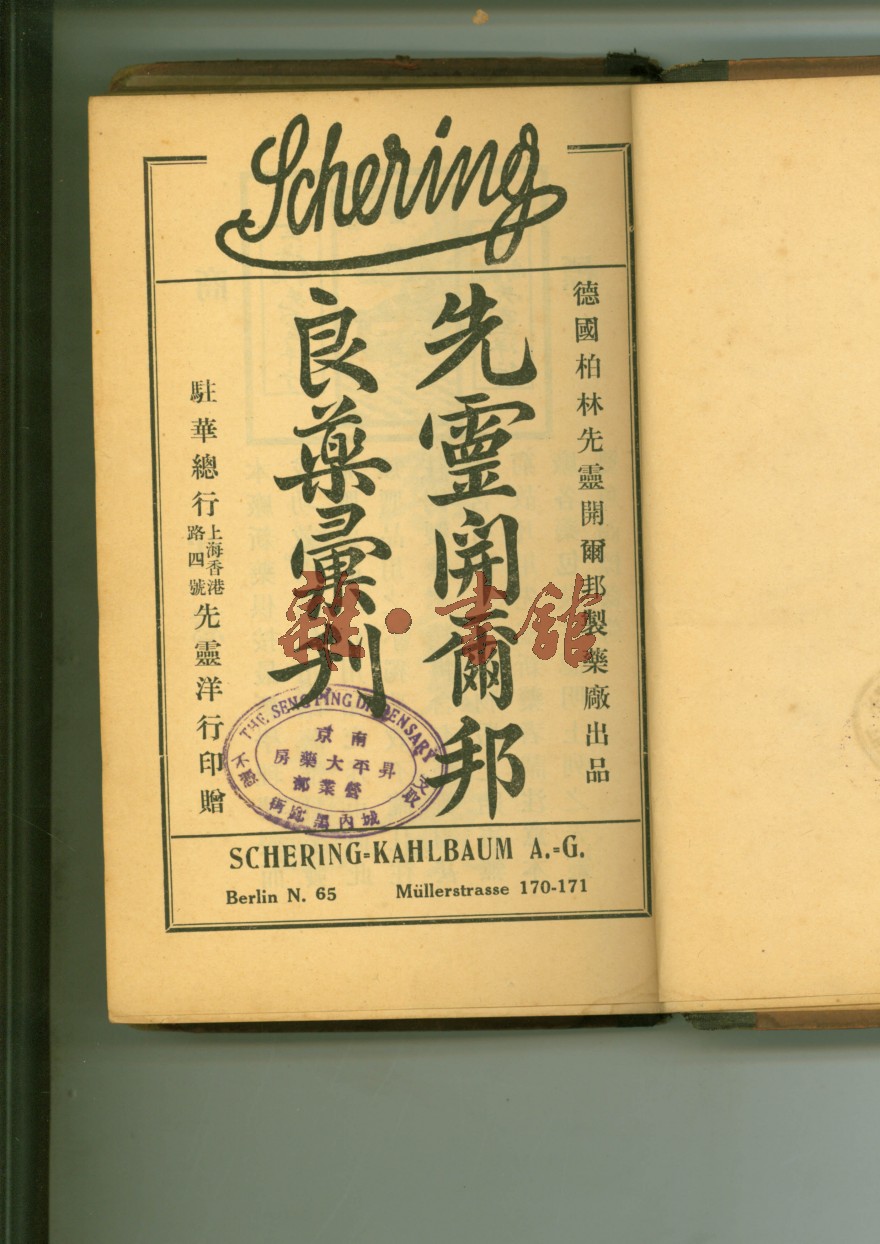 Schering
德國柏林先靈開爾邦製藥廠出品
先靈開爾邦
良藥彙刊
駐華總行
上海香港
路四號
先靈洋行印贈
THE SENG PING DISPENSARY
南京
昇平大藥房
營業部
城內
SCHERING-KAHLBAUM A.-G.
Berlin N. 65 Müllerstrasse 170-171
書館